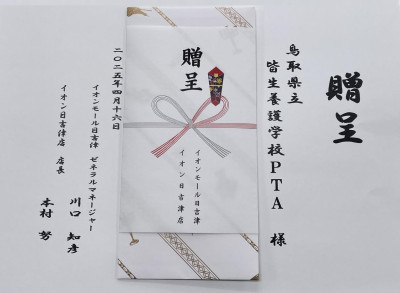 贈呈
鳥取県立
皆生養護学校PTA 様
贈呈
イオンモール日吉津
イオン日吉津店
二〇二五年四月十六日
イオンモール日吉津 ゼネラルマネージャー
川口 知彦
イオン日吉津店 店長
本村 努